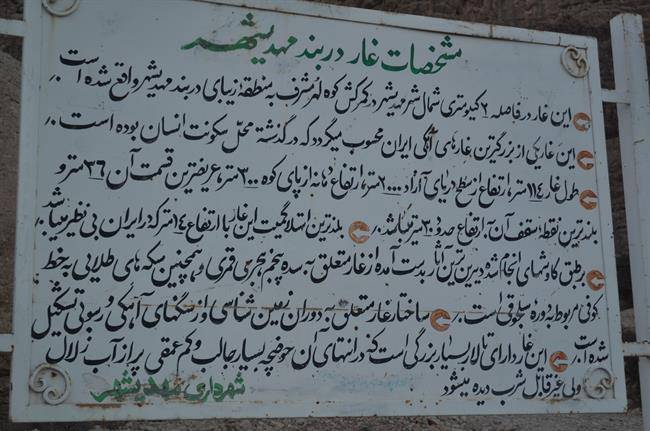 مشخصات غار دربند مهدیشهر
این غار در فاصله ۲ کیلومتری شمال شهر مهدیشهر در کمرکش کوه مشرف به منطقه زیبای دربند مهدیشهر واقع شده است.
این غار یکی از بزرگترین غارهای آهکی ایران محسوب میگردد که در گذشته محل سکونت انسان بوده است.
طول غار ۱۱۴ متر، ارتفاع از سطح دریای آزاد ۲۰۰۰ متر، ارتفاع دهانه از پای کوه ۳۰۰ متر، عریضترین قسمت آن ۳۶ متر و
بلندترین نقطه سقف آن، ارتفاع حدود ۲۰ متر میباشد. بلندترین استلاگمیت این غار با ارتفاع ۱۴ متر که در ایران بی نظیر میباشد
بر طبق کاوشهای انجام شده دیرین ترین آثار بدست آمده از غار متعلق به سده پنجم هجری قمری و همچنین سکه های طلایی به خط
کوفی مربوط به دوره سلجوقی است. ساختار غار متعلق به دوران زمین شناسی و از سنگهای آهکی و رسوبی تشکیل
شده است. این غار دارای تالار بسیار بزرگی است که در انتهای آن حوضچه بسیار جالب و کم عمقی پر از آب زلال
ولی غیر قابل شرب دیده میشود شهرداری مهدیشهر